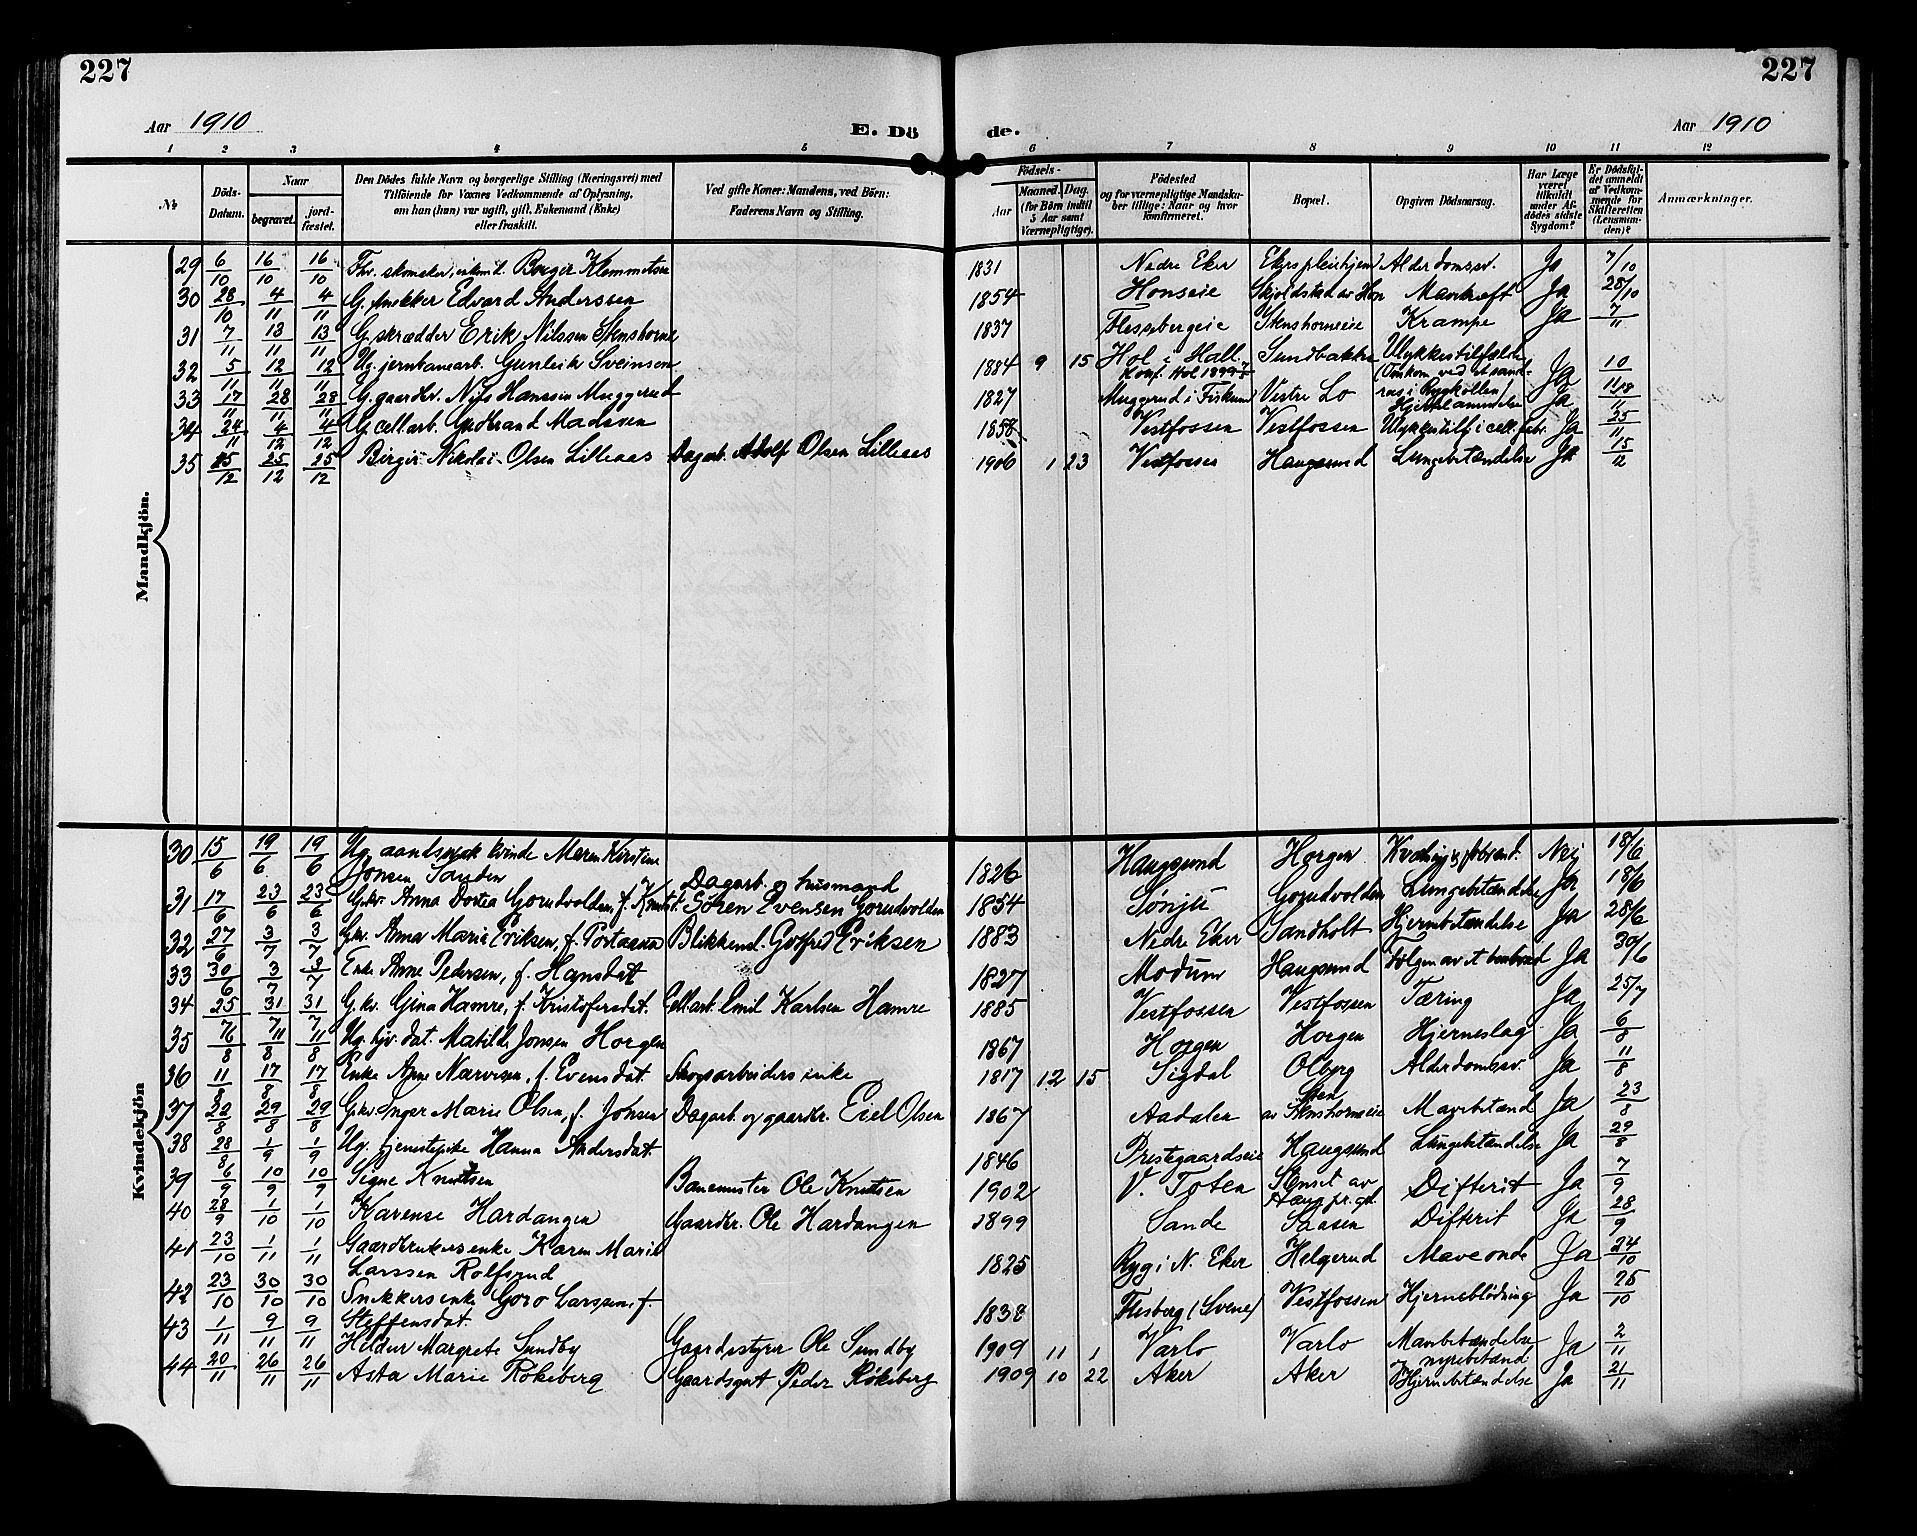 227
227
Aar 1910
E. Dö
de.
Aar 1910
1 2 3 4 5 6 7 8 9 10 11 12
№
Döds-
Datum.
Naar
begravet.
jord-
fæstet.
Den Dödes fulde Navn og borgerlige Stilling (Næringsvei) med
Tilföiende for Voxnes Vedkommende af Oplysning,
om han (hun) var ugift, gift, Enkemand (Enke)
eller fraskilt.
Ved gifte Koner: Mandens, ved Börn:
Faderens Navn og Stilling.
Födsels-
Aar
Maaned. Dag.
(for Börn indtil
5 Aar samt
Værnepligtige).
Födested
og for værnepligtige Mandsku-
ber tillige: Naar og hvor
konfirmeret.
Bopæl.
Opgiven Dödsaarsag.
Har Læge
været
tilkaldt
under Af-
dödes sidste
Sygdom?
Er Dödsfal-
det anmeldt
af Vedkom-
mende for
Skifteretten
(Lensman-
den)?
Anmærkninger.
Mandkjön.
29 6/10 16/10 16/10 Fhv. skomaker, enkem. Borger Klemmetsen 1831 Nedre Eker Ekers pleiehjem Alderdomssv. Ja 7/10
30 28/10 4/11 4/11 G. snekker Edvard Anderssen 1854 Honseie Skjoldstad av Hon Mavekræft Ja 28/10
31 7/11 13/11 13/11 G. skrædder Erik Nilssen Stenshorne 1837 Flesbergeie Stenshorneeie Krampe Ja 7/11
32 5/11 12/11 12/11 Ug. jernbanearb. Gunleik Sveinsen 1884 9 15 Hol i Hall. Sundbakke Ulykkestilfælde
Konf. Hol 1899 (Omkom ved et sand-
ras i Rygkollen) Ja 10/11
33 17/11 28/11 28/11 G. gaardbr. Nils Hanssen Muggerud 1827 Muggerud i Fiskum Vestre Lo Hjertelammelse Ja 18/11
34 24/11 4/12 4/12 G. cell.arb. Gudbrand Madssen 1858 Vestfossen Vestfossen Ulykketilf. i cell. fabr. Ja 25/11
35 15/12 25/12 25/12 Birger Nikolai Olsen Lilleaas Dagarb. Adolf Olsen Lilleaas 1906 1 23 Vestfossen Haugsund Lungebetændelse Ja 15/12
Kvindekjön
30 15/6 19/6 19/6 Ug. aandssvak kvinde Maren Kirstine
Jonsen Sanden 1826 Haugsund Horgen Nej 18/6
31 17/6 23/6 23/6 G. kv. Anna Dortea Gorudvolden, f. Knutsd. Dagarb. og husmand
Sören Evensen Gorudvolden 1854 Gorudvolden Lungebetændelse Ja 18/6
32 27/6 3/7 3/7 G. kv. Anna Marie Eriksen, f. Blikkensl. Gotfred Eriksen 1883 Nedre Eker Sandholt Hjernebetændelse Ja 28/6
33 30/6 3/7 3/7 Enke Anne Pedersen, f. Hansdat 1827 Modum Haugsund Følgen av et benbrud Ja 30/6
34 25/7 31/7 31/7 G. kv. Gina Hamre, f. Kristofersdat. Cell.arb. Emil Karlsen Hamre 1885 Vestfossen Vestfossen Tæring Ja 25/7
35 6/8 11/8 11/8 Ug. hjv. dat. Matilde Jonsen Horgen 1867 Horgen Horgen Hjerneslag Ja 6/8
36 11/8 17/8 17/8 Enke Anne Narvesen, f. Evensdat. Skogsarbeiders enke 1817 12 15 Sigdal Olberg Alderdomssv. Ja 11/8
37 22/8 29/8 29/8 G. kv. Inger Marie Olsen, f. Jonsen Dagarb. og gaardbr. Eiel Olsen 1867 Aadalen Sten
av Stenshorneeie Mavebetænd Ja 23/8
38 28/8 1/9 1/9 Ug. tjenestepike Hanna Andersdat. 1846 Prestegaardseie Haugsund Lungebetændelse Ja 29/8
39 6/9 10/9 10/9 Signe Knutsen Banemester Ole Knutsen 1902 V. Toten Stenset av
Haug pr.gd. Difterit Ja 7/9
40 28/9 1/10 1/10 Karense Hardangen Gaardbr. Ole Hardangen 1899 Sande Saasen Difterit Ja 28/9
41 23/10 1/11 1/11 Gaardbrukers enke Karen Marie
Larssen Rolfsrud 1825 Ryg i N. Eker Helgerud Maveonde Ja 24/10
42 23/10 30/10 30/10 Snekkers enke Goro Larssen, f.
Steffensdat. 1838 Flesberg (Svene) Vestfossen Hjerneblödning Ja 25/10
43 1/11 9/11 9/11 Hildur Margrete Sundby Gaardsstyrer Ole Sundby 1909 11 1 Varlo Varlo Mavebetændelse Ja 2/11
44 20/11 26/11 26/11 Asta Marie Rökeberg Gaardsgut Peder Rökeberg 1909 10 22 Aker Aker nyrebetænd
Hjernebetændelse Ja 21/11